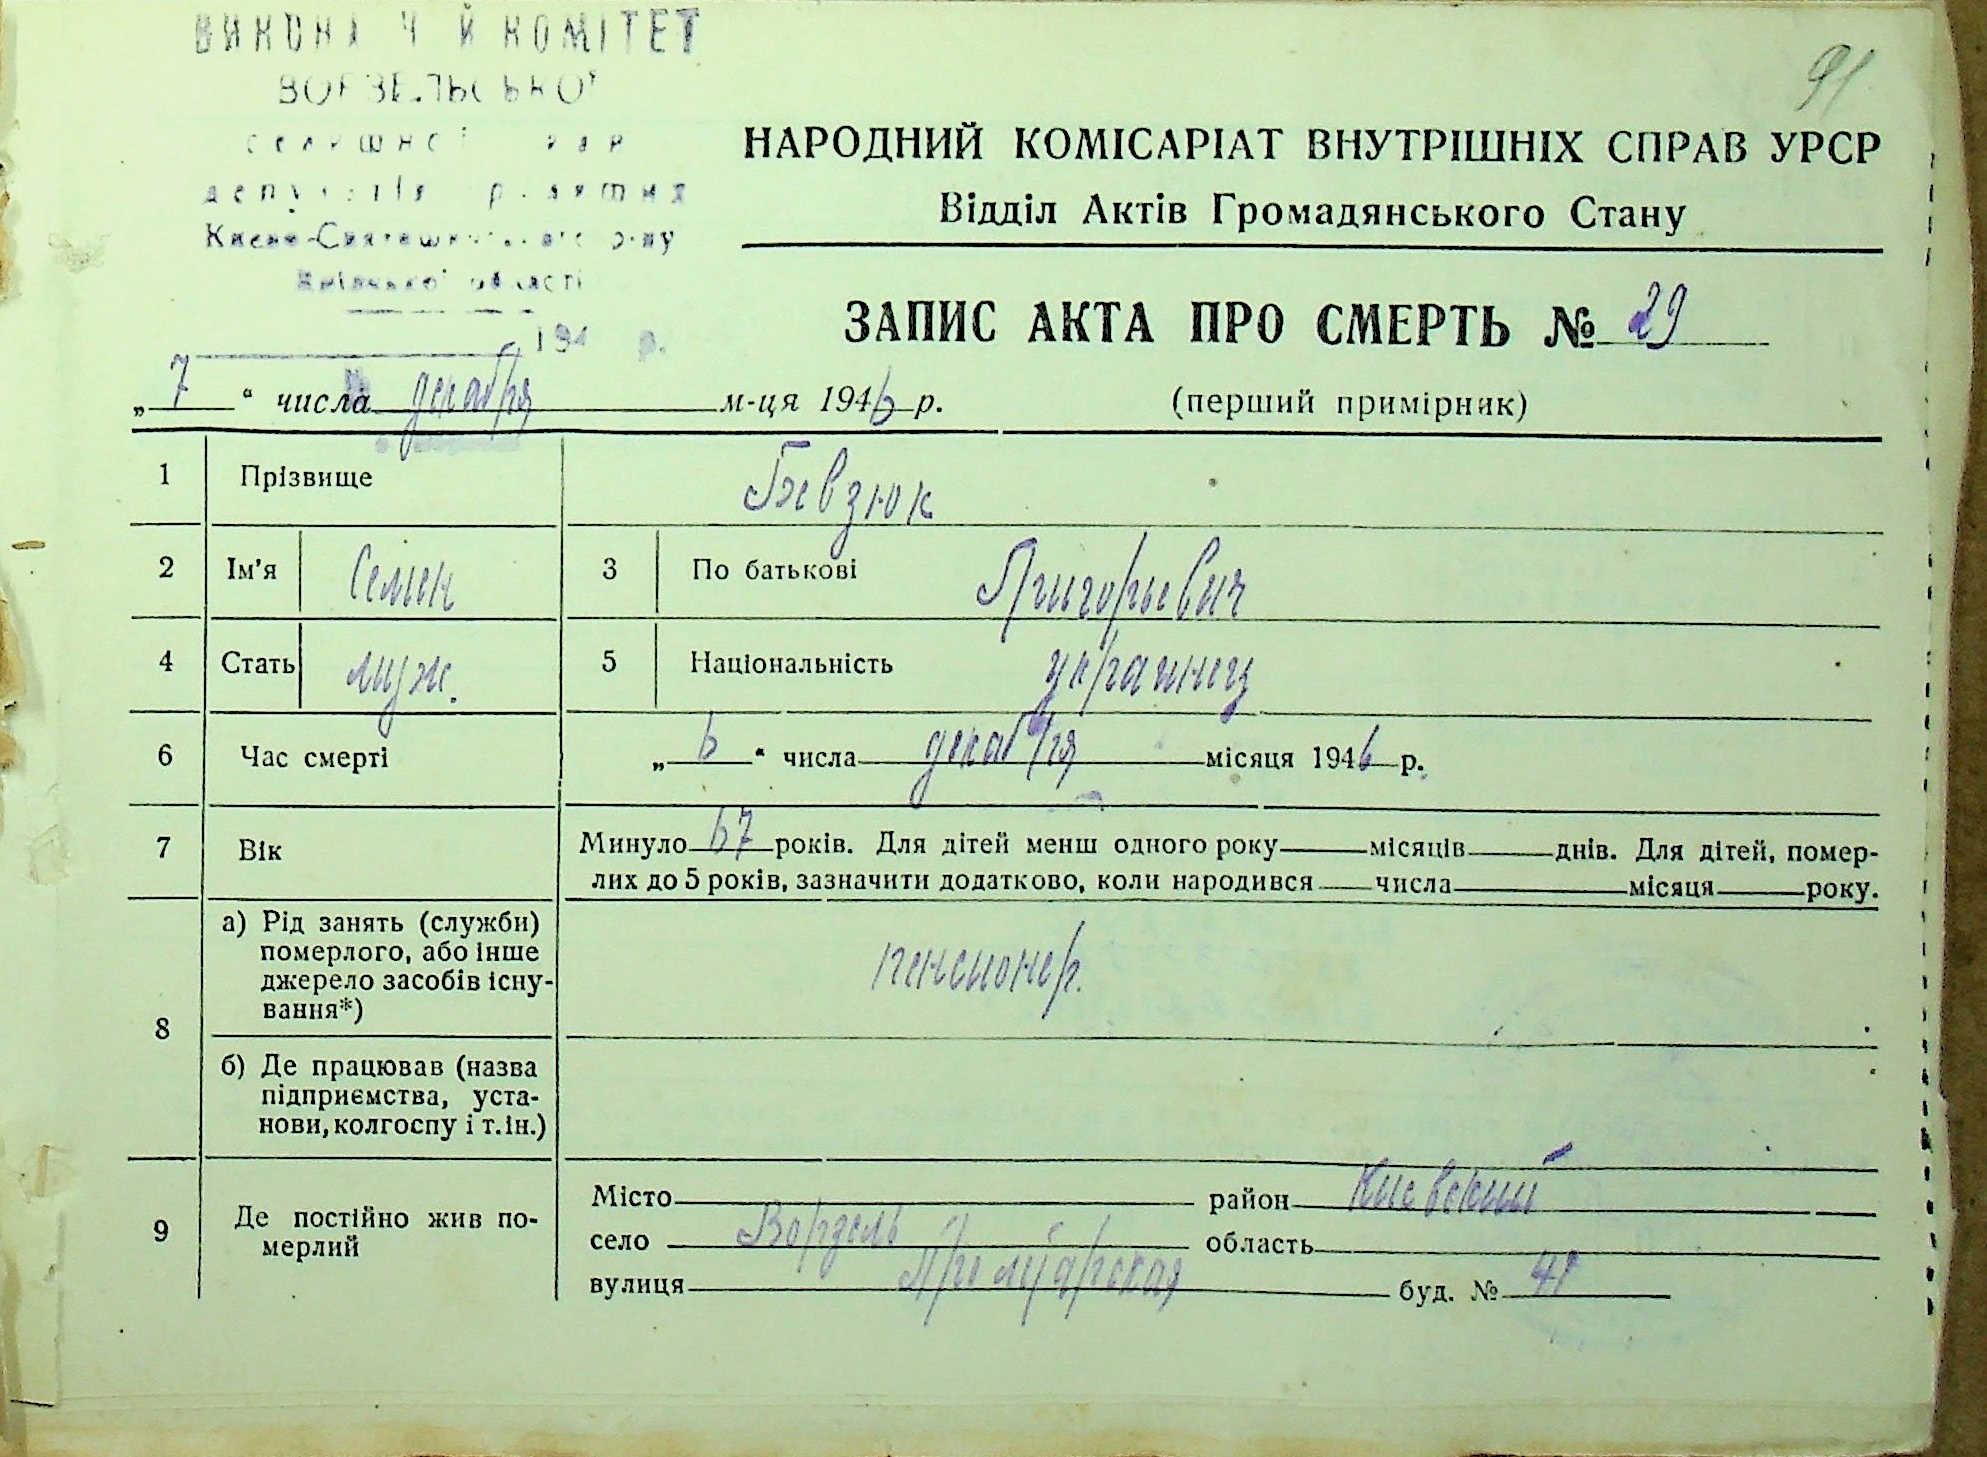 КОМІТЕТ
91
НАРОДНИЙ КОМІСАРІАТ ВНУТРІШНІХ СПРАВ УРСР
Відділ Актів Громадянського Стану
області
ЗАПИС АКТА ПРО СМЕРТЬ № 29
194 р.
„ 7 “ числа декабря м-ця 1946 р. (перший примірник)
1 Прізвище Бевзюк
2 Ім'я Семен 3 По батькові Григорьевич
4 Стать муж. 5 Національність украинец
6 Час смерті „ 6 “ числа декабря місяця 1946 р.
7 Вік Минуло 67 років. Для дітей менш одного року місяців днів. Для дітей, помер-
лих до 5 років, зазначити додатково, коли народився числа місяця року.
8 а) Рід занять (служби)
померлого, або інше
джерело засобів існу-
вання*)
пенсионер.
б) Де працював (назва
підприємства, уста-
нови, колгоспу і т. ін.)
9 Де постійно жив по-
мерлий
Місто район Киевский
село Ворзель область
вулиця буд. №